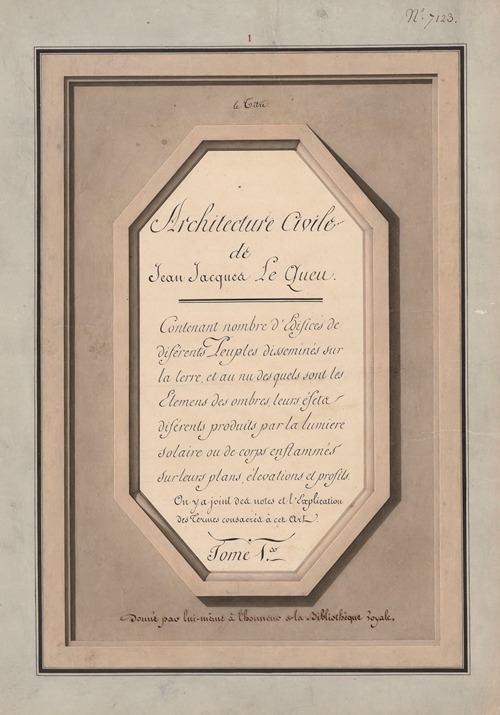 Nº 7123.
1
le Titre
Architecture Civile
de
Jean Jacques Le Queu.
Contenant nombre d'Edifices de
diférents Peuples disseminés sur
la terre, et au nu des quels sont les
Elemens des ombres, leurs éfets
diférents produits par la lumiere
solaire ou de corps enflammés
sur leurs plans, élevations et profils.
On y a joint des notes et l'Explication
des Termes consacrés à cet Art.
Tome 1.er
Donné par lui-même à l'honneur de la Bibliothèque Royale.